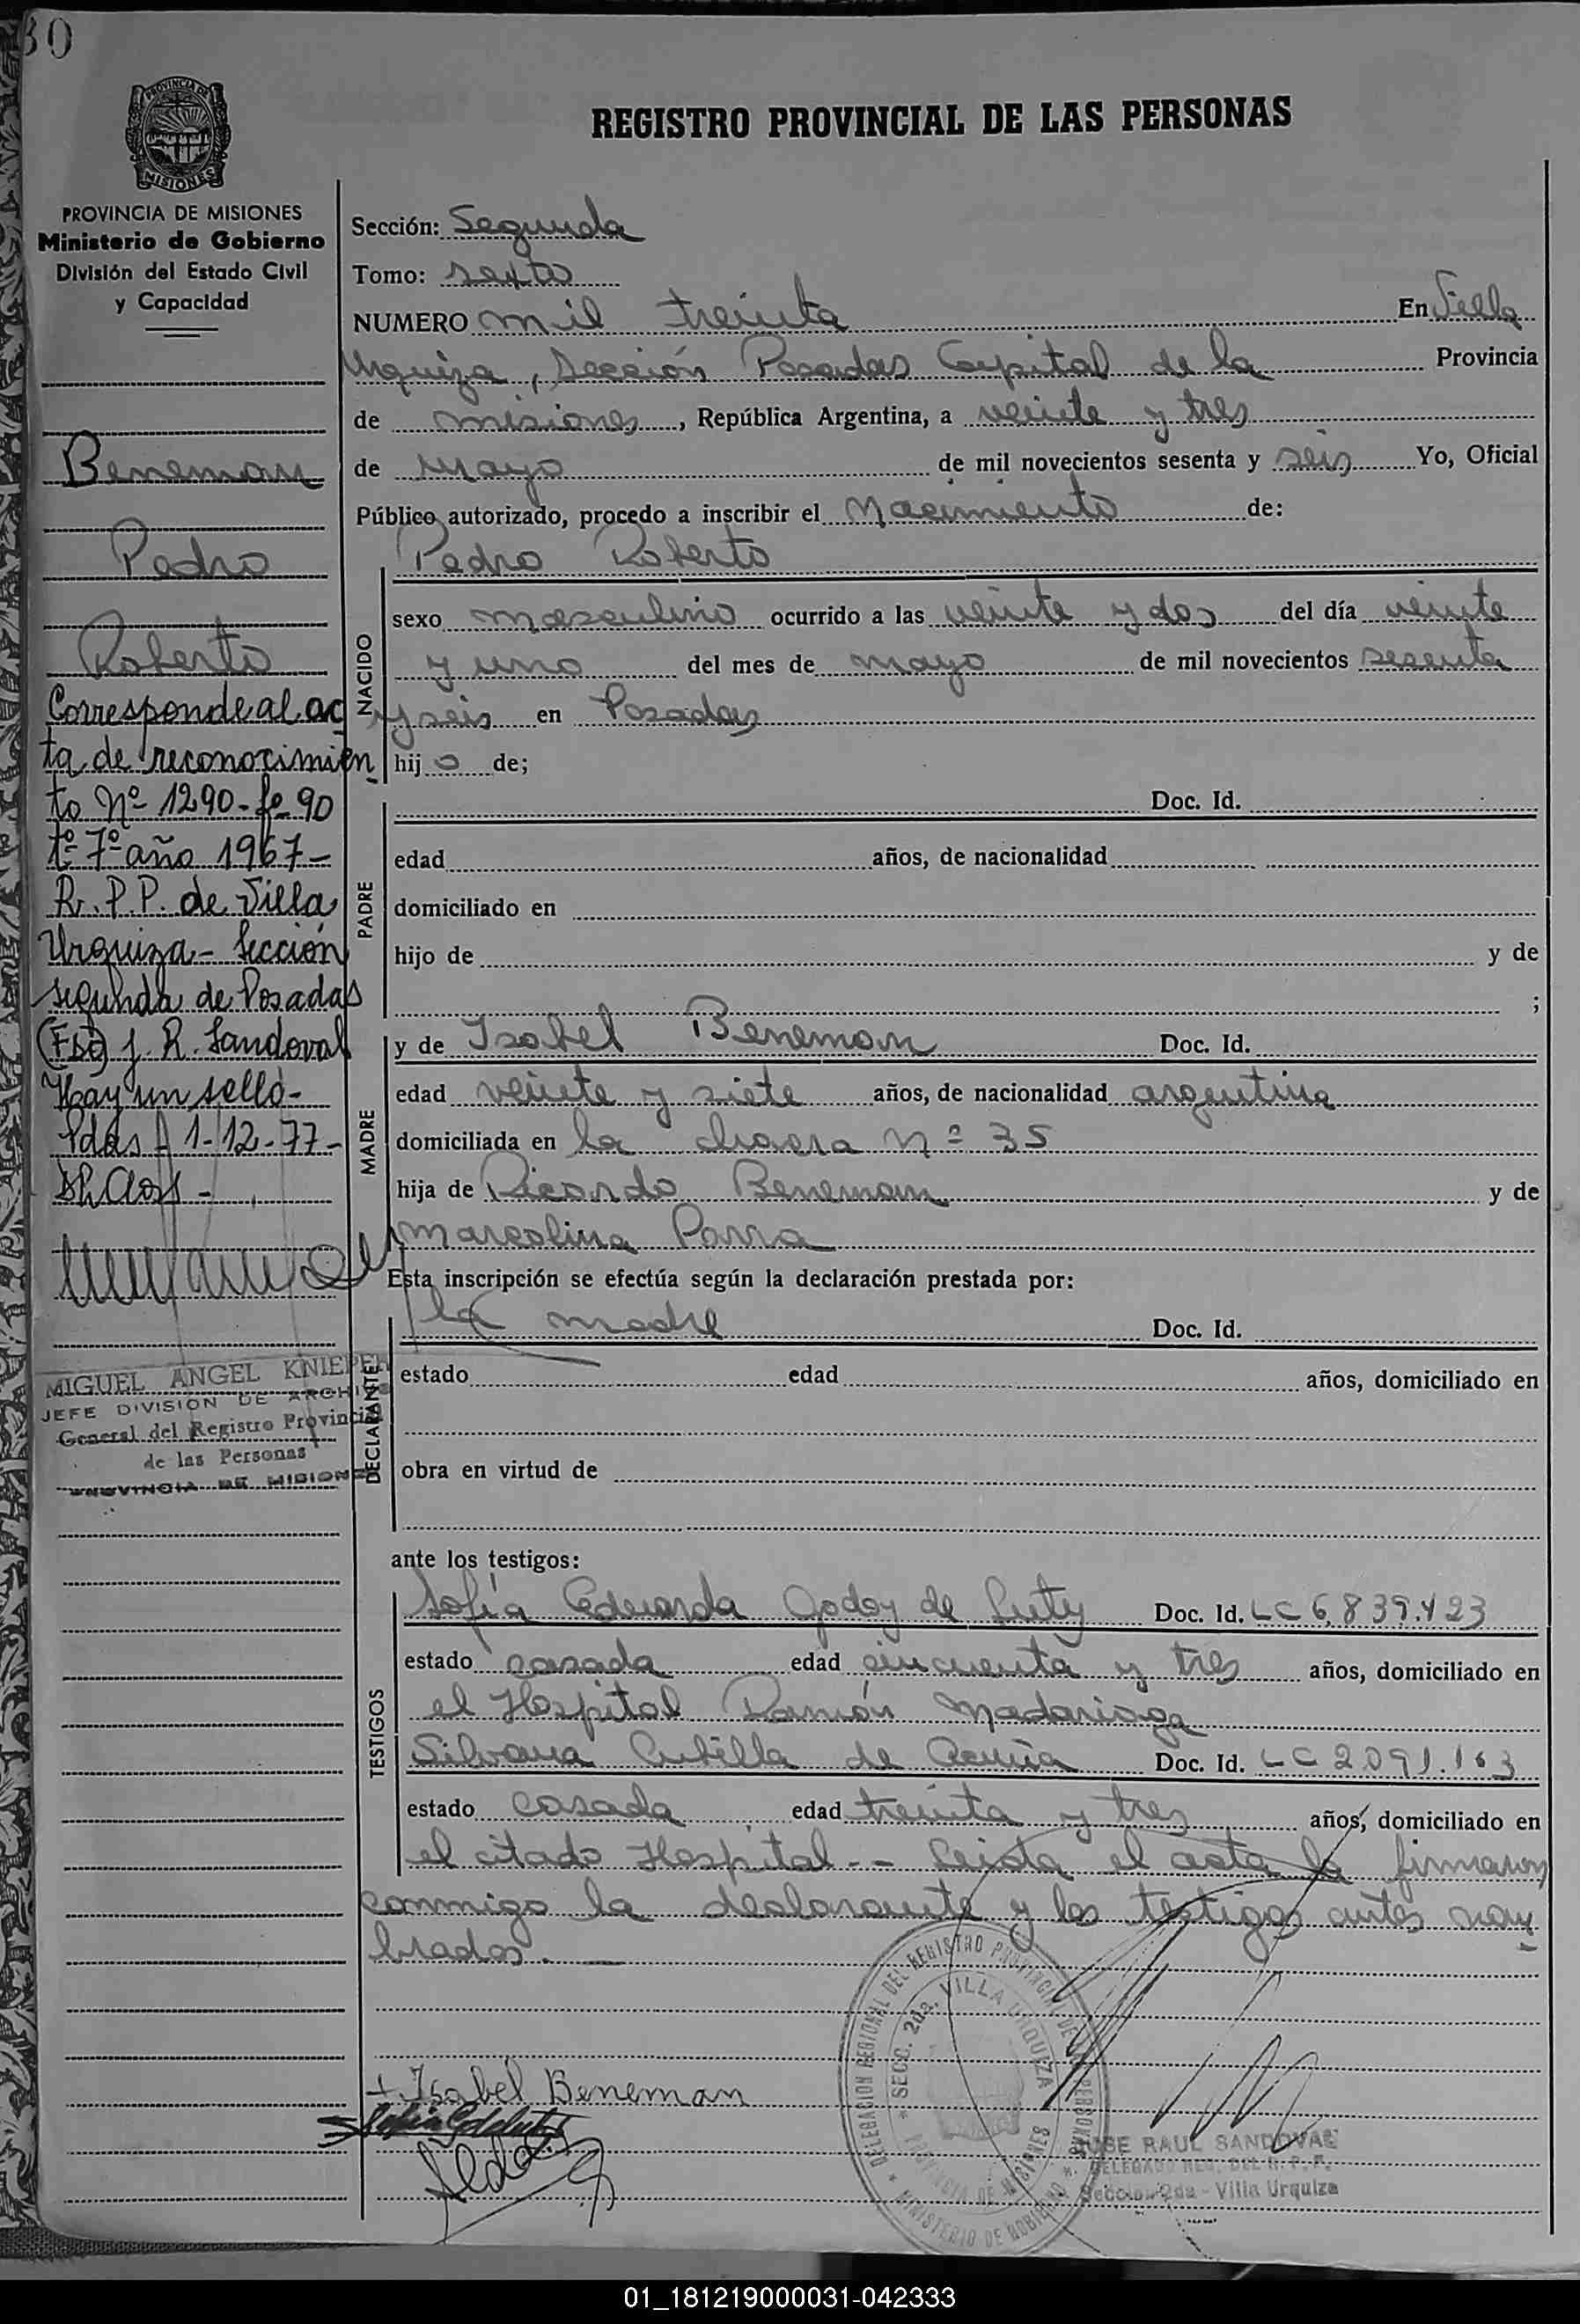 30
PROVINCIA DE
MISIONES
PROVINCIA DE MISIONES
Ministerio de Gobierno
División del Estado Civil
y Capacidad
Beneman
Pedro
Roberto
Corresponde al ac
ta de reconocimien
to Nº 1290 - fº 90
tº 7º año 1967 -
R. P. P. de Villa
Urquiza - Sección
segunda de Posadas
(Fdo) J. R. Sandoval
Hay un sello -
Pdas 1-12-77-
MIGUEL ANGEL KNIEPER
JEFE DIVISION DE ARCHIVO
General del Registro Provincial
de las Personas
PROVINCIA DE MISIONES
REGISTRO PROVINCIAL DE LAS PERSONAS
Sección: Segunda
Tomo: sexto
NUMERO mil treinta En Villa
Urquiza, Sección Posadas Capital de la Provincia
de misiones, República Argentina, a veinte y tres
de mayo de mil novecientos sesenta y seis Yo, Oficial
Público autorizado, procedo a inscribir el Nacimiento de:
Pedro Roberto
NACIDO
sexo masculino ocurrido a las veinte y dos del día veinte
y uno del mes de mayo de mil novecientos sesenta
y seis en Posadas
hijo de;
PADRE
Doc. Id.
edad años, de nacionalidad
domiciliado en
hijo de y de
;
MADRE
y de Isabel Beneman Doc. Id.
edad veinte y siete años, de nacionalidad argentina
domiciliada en la chacra Nº 35
hija de Ricardo Beneman y de
Marcolina Parra
Esta inscripción se efectúa según la declaración prestada por:
DECLARANTE
la madre Doc. Id.
estado edad años, domiciliado en
obra en virtud de
ante los testigos:
TESTIGOS
Sofía Eduarda Godoy de Doc. Id. LC 6.839.423
estado casada edad cincuenta y tres años, domiciliado en
el Hospital Ramón Madariaga
Silvana Cubilla de Acuña Doc. Id. LC 2091.163
estado casada edad treinta y tres años, domiciliado en
el citado Hospital. - - Leida el acta la firmaron
conmigo la declarante y los testigos antes nom
brados. —
Isabel Beneman
DELEGACION REGIONAL DEL REGISTRO PROVINCIAL DE LAS PERSONAS
* SECC. 2da. VILLA URQUIZA
PROVINCIA DE MISIONES
* MINISTERIO DE GOBIERNO *
JOSE RAUL SANDOVAL
DELEGADO REG. DEL R. P. P.
Sección 2da - Villa Urquiza
01_181219000031-042333